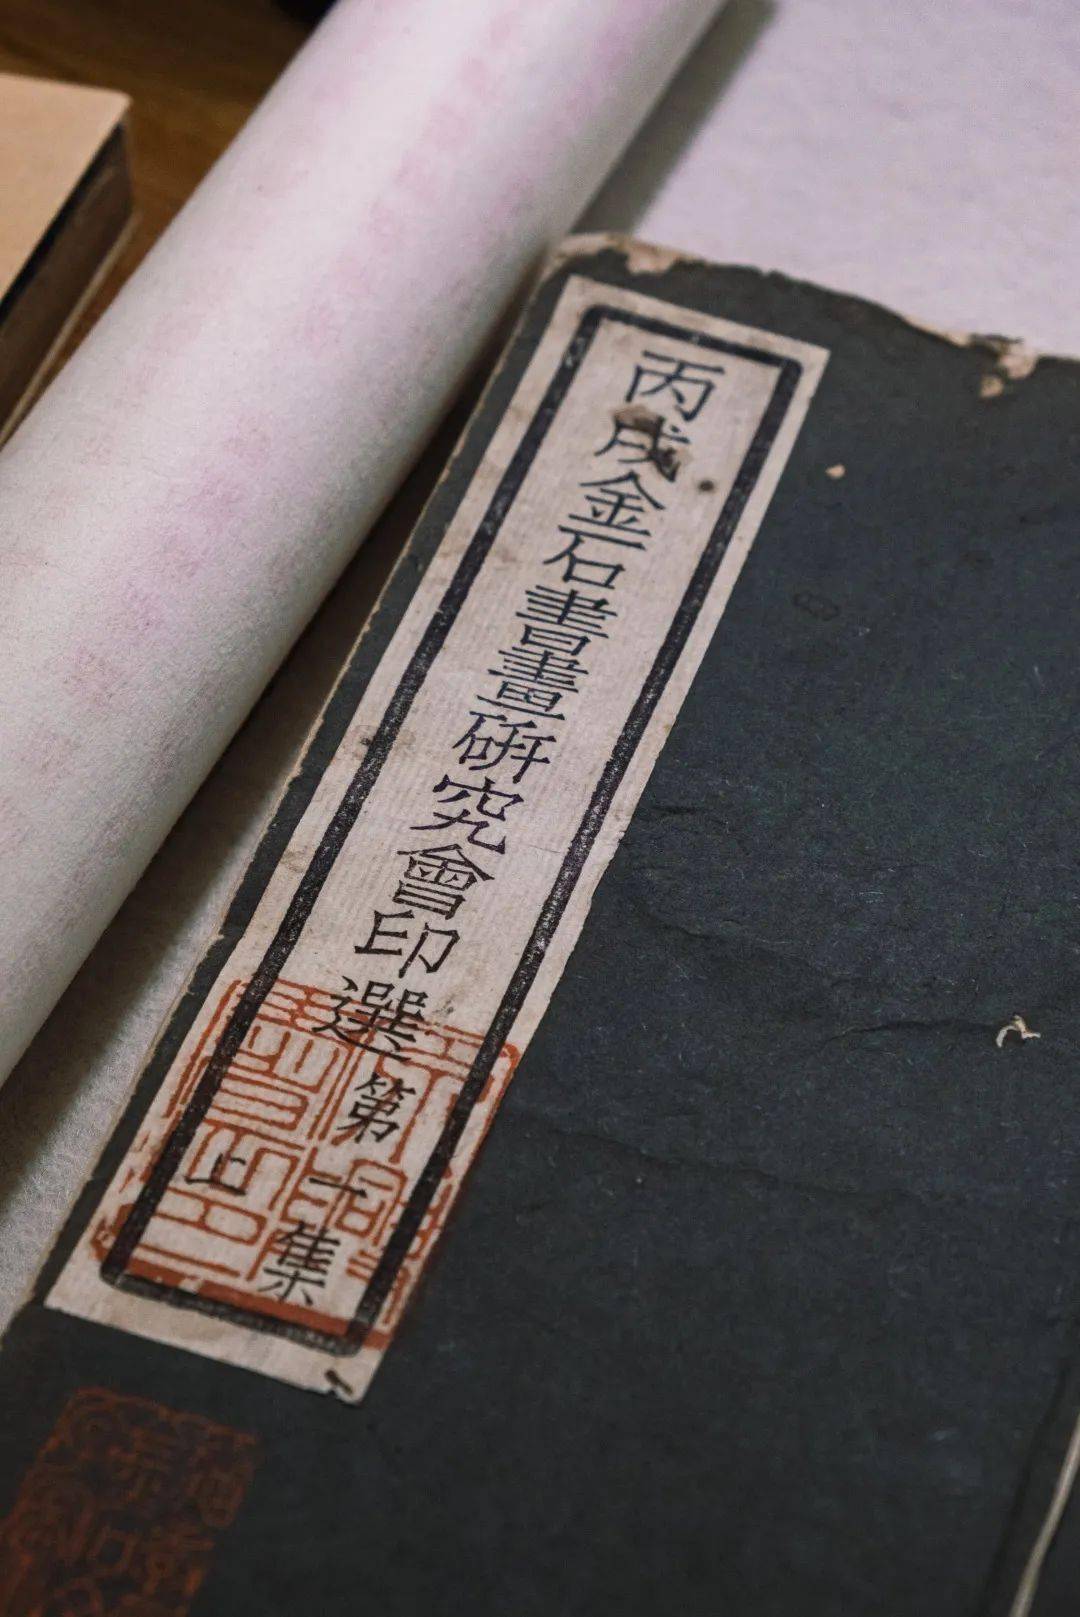 丙戌金石書畫研究會印選
第一集
上